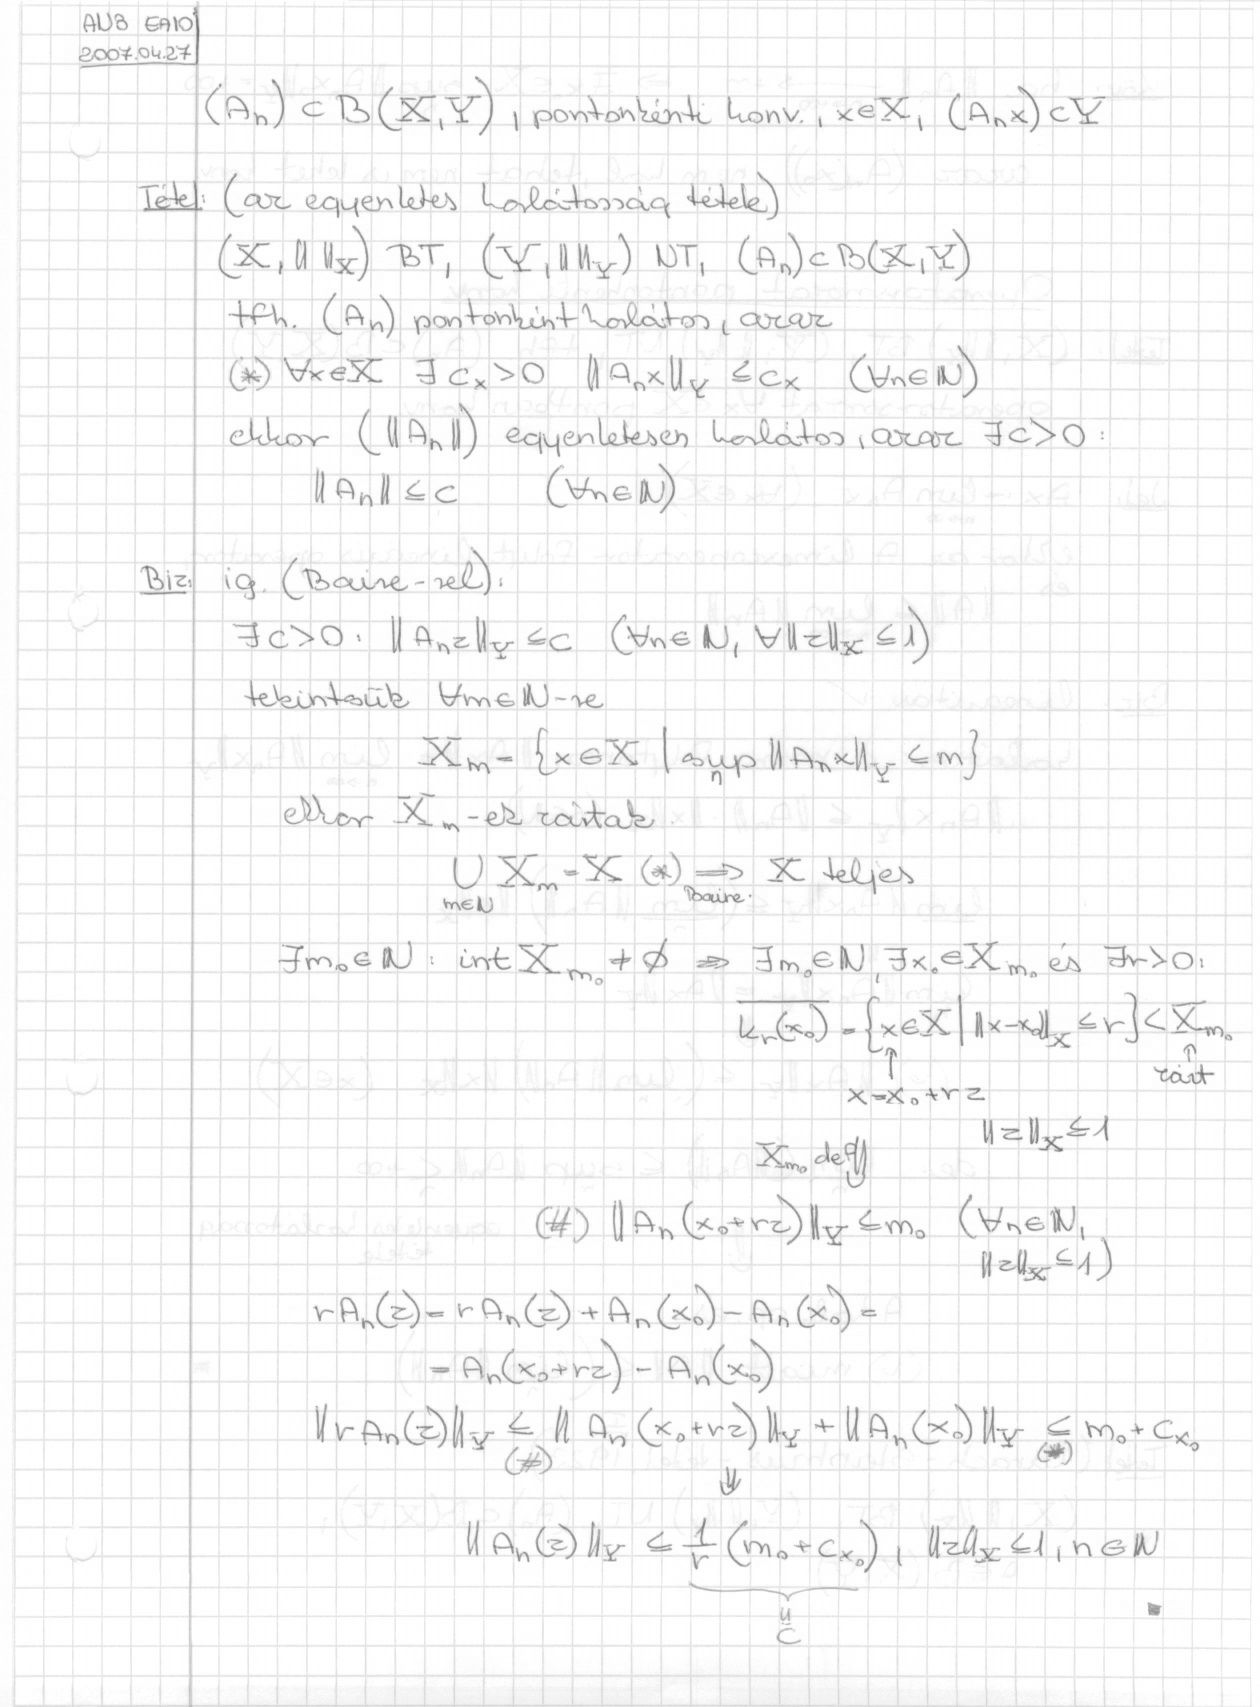 AN3 EA10
2007.04.27
(Aₙ) ⊂ B(X,Y), pontonkénti konv., x∈X, (Aₙx)⊂Y
Tétel: (az egyenletes korlátosság tétele)
(X, ‖ ‖_X) BT, (Y, ‖ ‖_Y) NT, (Aₙ)⊂B(X,Y)
tfh. (Aₙ) pontonként korlátos, azaz
(*) ∀x∈X ∃ c_x>0 ‖Aₙx‖_Y ≤ c_x (∀n∈ℕ)
ekkor (‖Aₙ‖) egyenletesen korlátos, azaz ∃c>0:
‖Aₙ‖ ≤ c (∀n∈ℕ)
Biz: ig. (Baire-rel).
∃c>0: ‖Aₙz‖_Y ≤ c (∀n∈ℕ, ∀‖z‖_X ≤ 1)
tekintsük ∀m∈ℕ-re
X_m = {x∈X | sup_n ‖Aₙx‖_Y ≤ m}
ekkor X_m-ek zártak.
∪_{m∈ℕ} X_m = X (*) ⟹_{Baire.} X teljes
∃m₀∈ℕ: int X_{m₀} ≠ ∅ ⇒ ∃m₀∈ℕ, ∃x₀∈X_{m₀} és ∃r>0:
\overline{k_r(x₀)} = {x∈X | ‖x-x₀‖_X ≤ r} ⊂ X_{m₀}
↑ ↑
zárt
x=x₀+rz
‖z‖_X ≤ 1
X_{m₀} def ⇓
(#) ‖Aₙ(x₀+rz)‖_Y ≤ m₀ (∀n∈ℕ,
‖z‖_X ≤ 1)
rAₙ(z) = rAₙ(z) + Aₙ(x₀) - Aₙ(x₀) =
= Aₙ(x₀+rz) - Aₙ(x₀)
‖rAₙ(z)‖_Y ≤_{(#)} ‖Aₙ(x₀+rz)‖_Y + ‖Aₙ(x₀)‖_Y ≤_{(*)} m₀ + c_{x₀}
⇓
‖Aₙ(z)‖_Y ≤ 1/r (m₀+c_{x₀}), ‖z‖_X ≤ 1, n∈ℕ
=
c